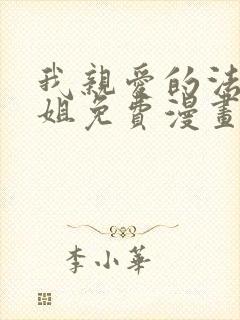 我親愛的法
姐免費漫畫
李小華